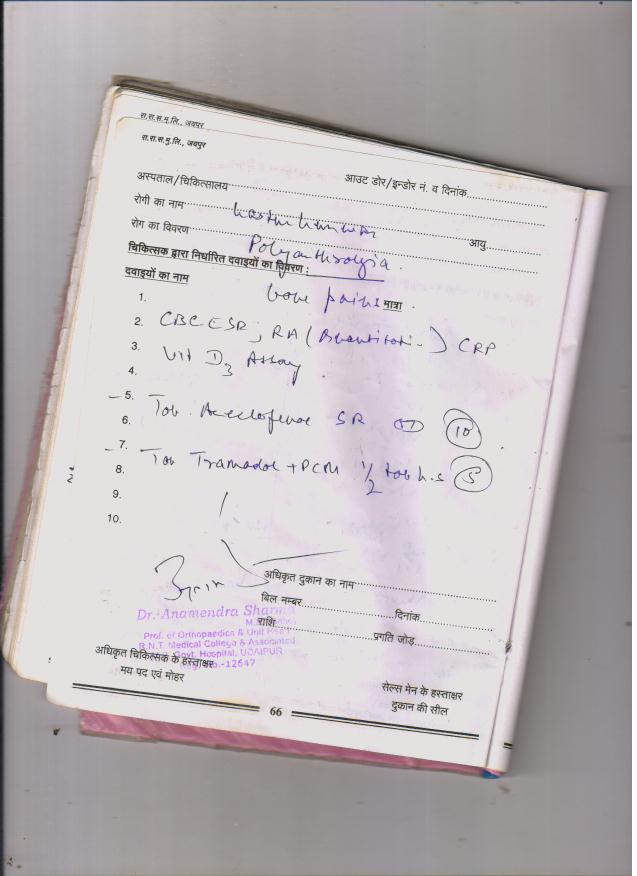 रा.रा.स.मु.लि., जयपुर
रा.रा.स.मु.लि., जयपुर
अस्पताल/चिकित्सालय
आउट डोर/इन्डोर नं. व दिनांक
रोगी का नाम
आयु
रोग का विवरण Polyarthralgia
चिकित्सक द्वारा निर्धारित दवाइयों का विवरण :
दवाइयों का नाम
मात्रा
1. bone pains
2. CBC ESR, RA ( ) CRP
3. Vit D3 Assay
4.
5. Tab. Aceclofenac SR OD 10
6.
7.
8. Tab Tramadol + PCM 1/2 tab h.s 5
9.
10.
अधिकृत दुकान का नाम
बिल नम्बर दिनांक
राशि प्रगति जोड़
Dr. Anamendra Sharma
Prof. of Orthopaedics & Unit Head
R.N.T. Medical College & Associated
Govt. Hospital, UDAIPUR
No.-12647
अधिकृत चिकित्सक के हस्ताक्षर
मय पद एवं मोहर
सेल्स मेन के हस्ताक्षर
दुकान की सील
66